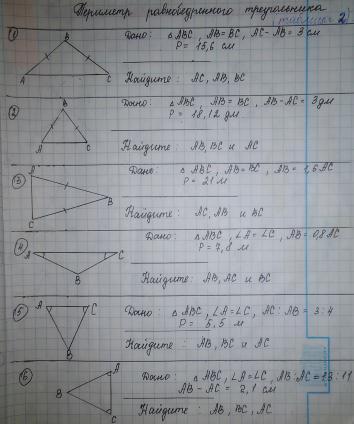 Периметр равнобедренного треугольника
(таблица 2)
① Дано: △ABC, AB=BC, AC-AB=3 см
P=15,6 см
Найдите: AC, AB, BC
A B C
② Дано: △ABC, AB=BC, AB-AC=3 дм
P=18,12 дм
Найдите: AB, BC и AC
A B C
③ Дано: △ABC, AB=BC, AB=1,6 AC
P=21 м
Найдите: AC, AB и BC
A B C
④ Дано: △ABC, ∠A=∠C, AB=0,8 AC
P=7,8 м
Найдите: AB, AC и BC
A B C
⑤ Дано: △ABC, ∠A=∠C, AC:AB=3:4
P=5,5 м
Найдите: AB, BC и AC
A C B
⑥ Дано: △ABC, ∠A=∠C, AB:AC=13:11
AB-AC=2,1 см
Найдите: AB, BC, AC
A B C